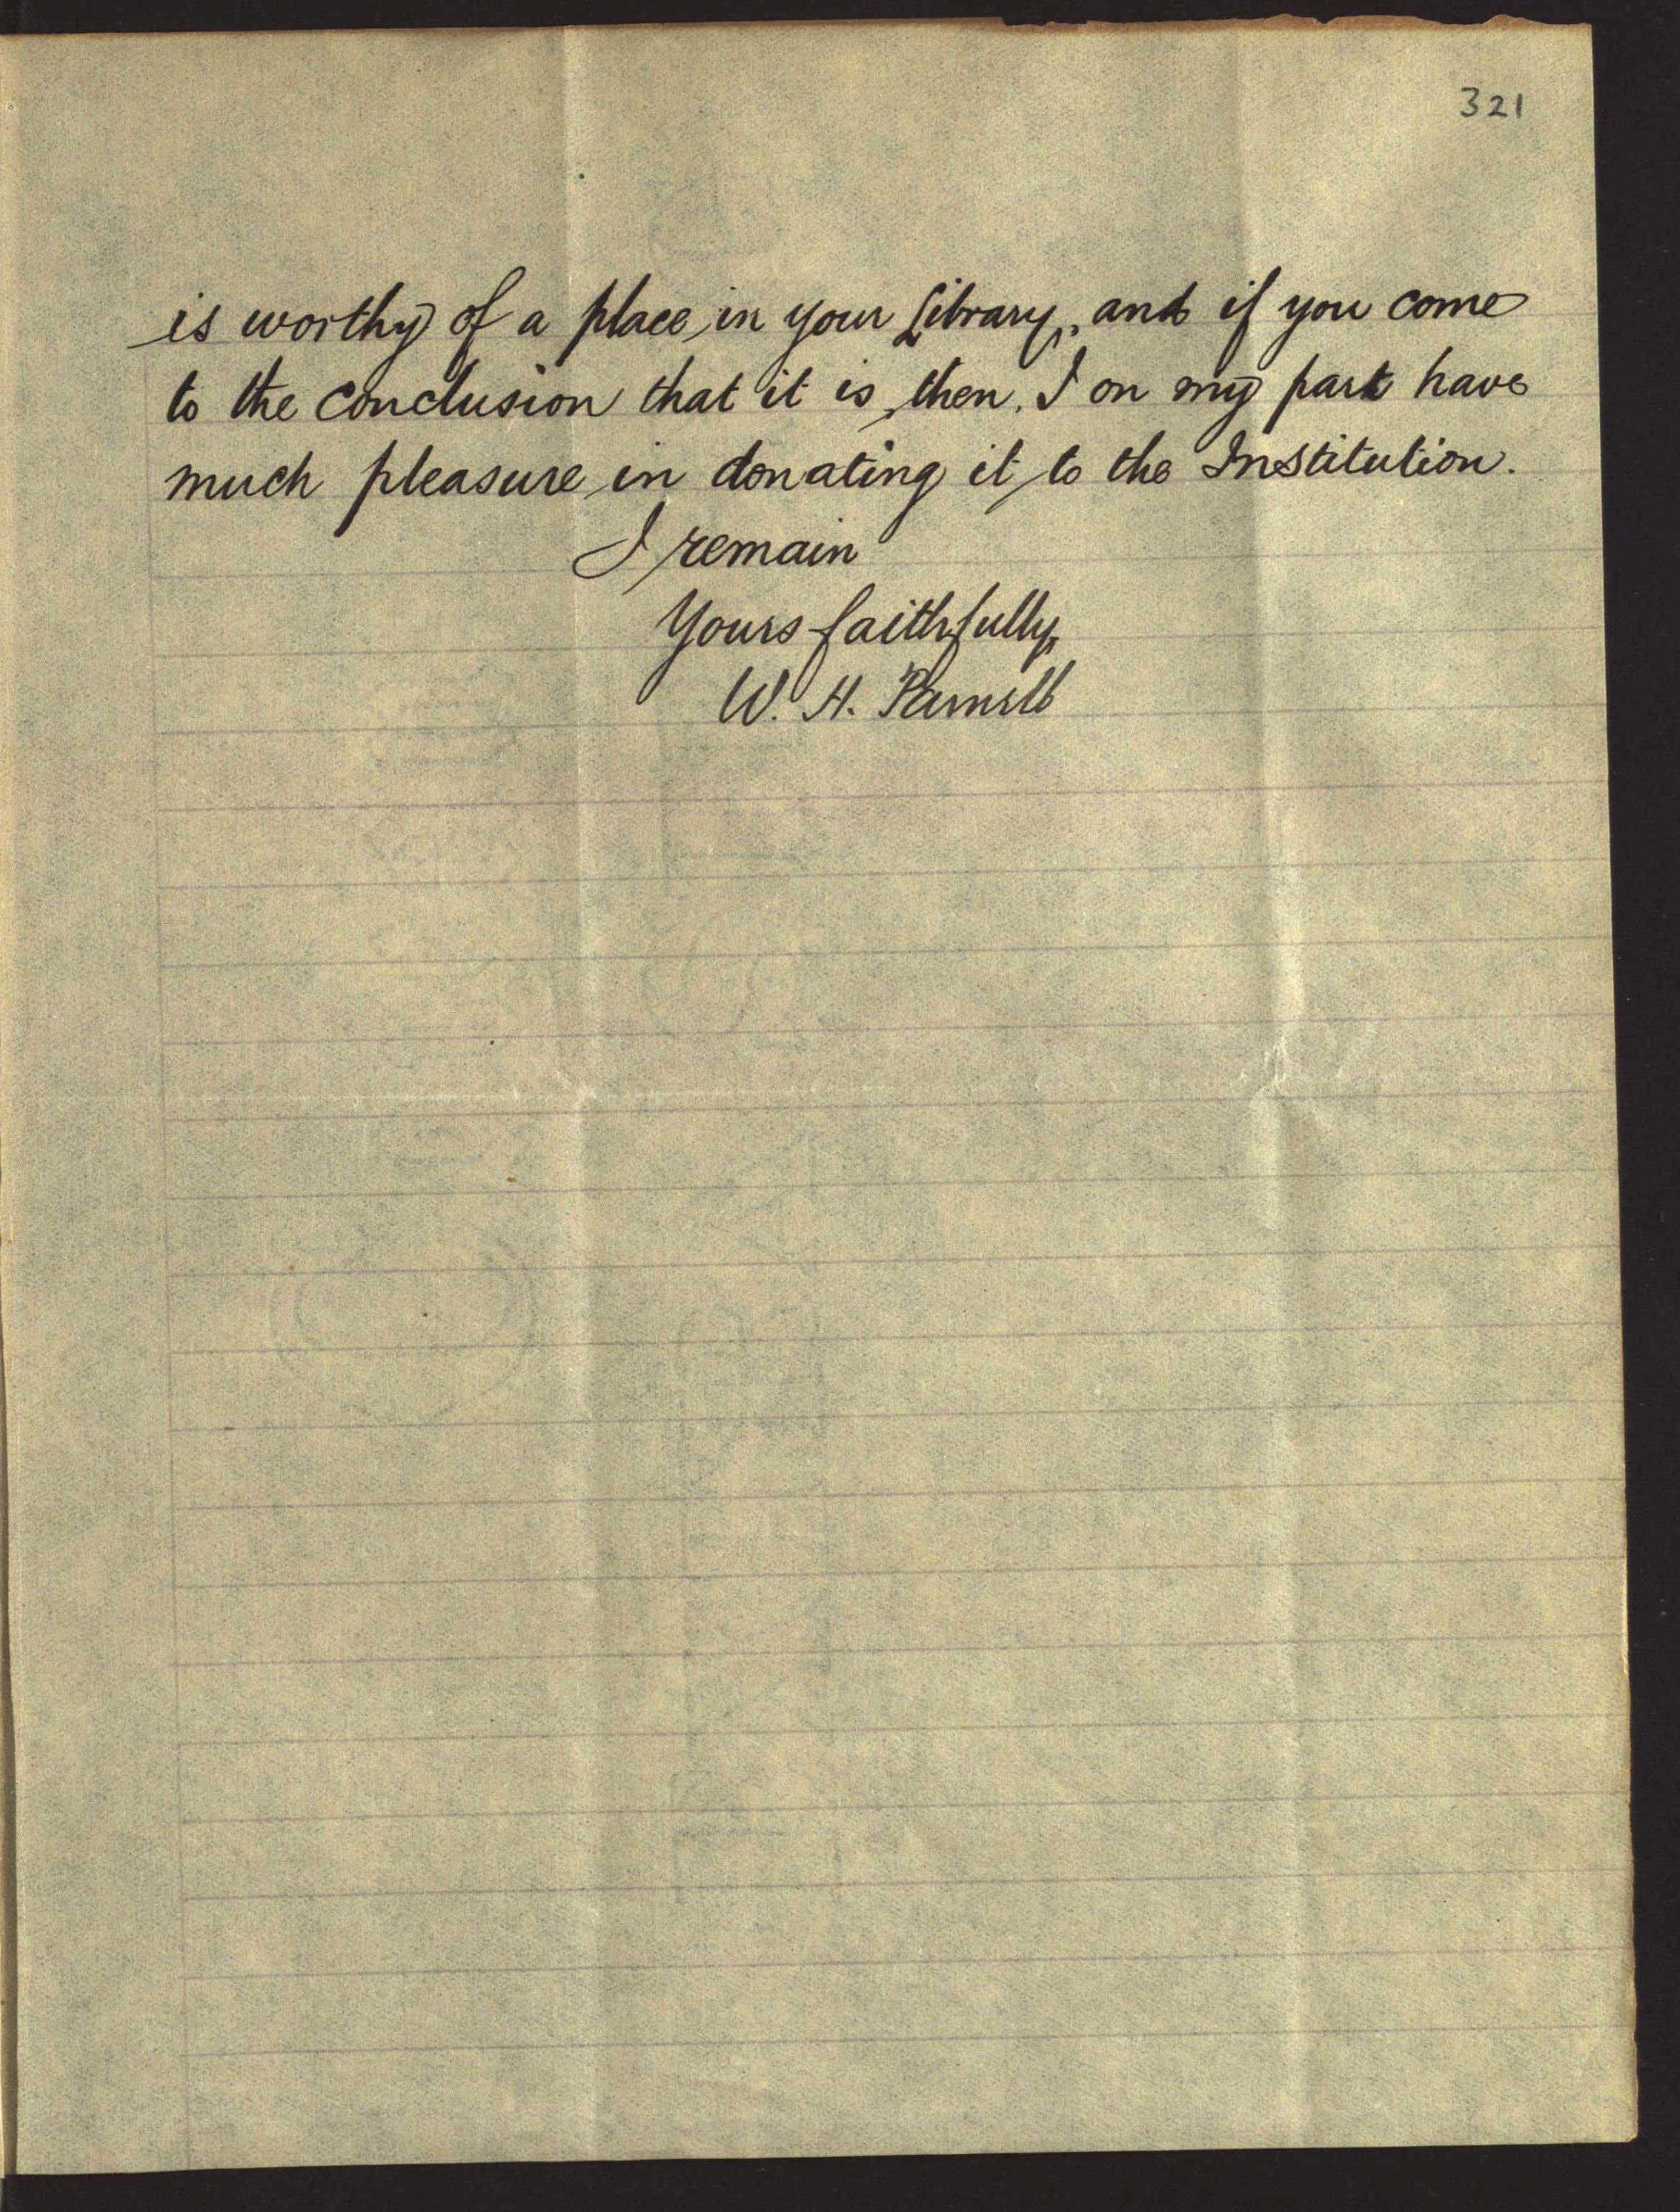 321
is worthy of a place in your Library, and if you come
to the conclusion that it is, then, I on my part have
much pleasure in donating it to the Institution.
I remain
Yours faithfully,
W. H. Parnell